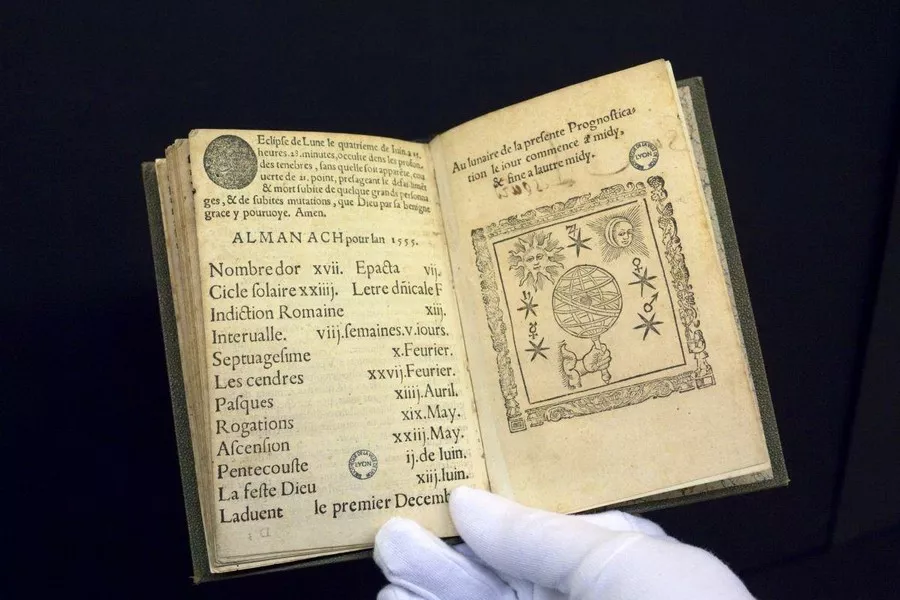 Eclipse de Lune le quatrieme de Iuin, a 15.
heures. 28. minutes, occulte dens les profun-
des tenebres, sans quelle soit apparête, cou
uerte de 21. point, presageant le
& mort subite de quelque grands personna
ges, & de subites mutations, que Dieu par sa benigne
grace y pouruoye. Amen.
ALMANACH pour lan 1555.
Nombre dor xvii. Epacta vij.
Cicle solaire xxiiij. Letre dñicale F
Indiction Romaine xiij.
Interualle. viij. semaines. v. iours.
Septuagesime x. Feurier.
Les cendres xxvij. Feurier.
Pasques xiiij. Auril.
Rogations xix. May.
Ascension xxiij. May.
Pentecouste ij. de Iuin.
La feste Dieu xiij. Iuin.
Laduent le premier Decemb
LYON
Au lunaire de la presente Prognostica-
tion le iour commence a midy,
& fine a lautre midy.
LYON